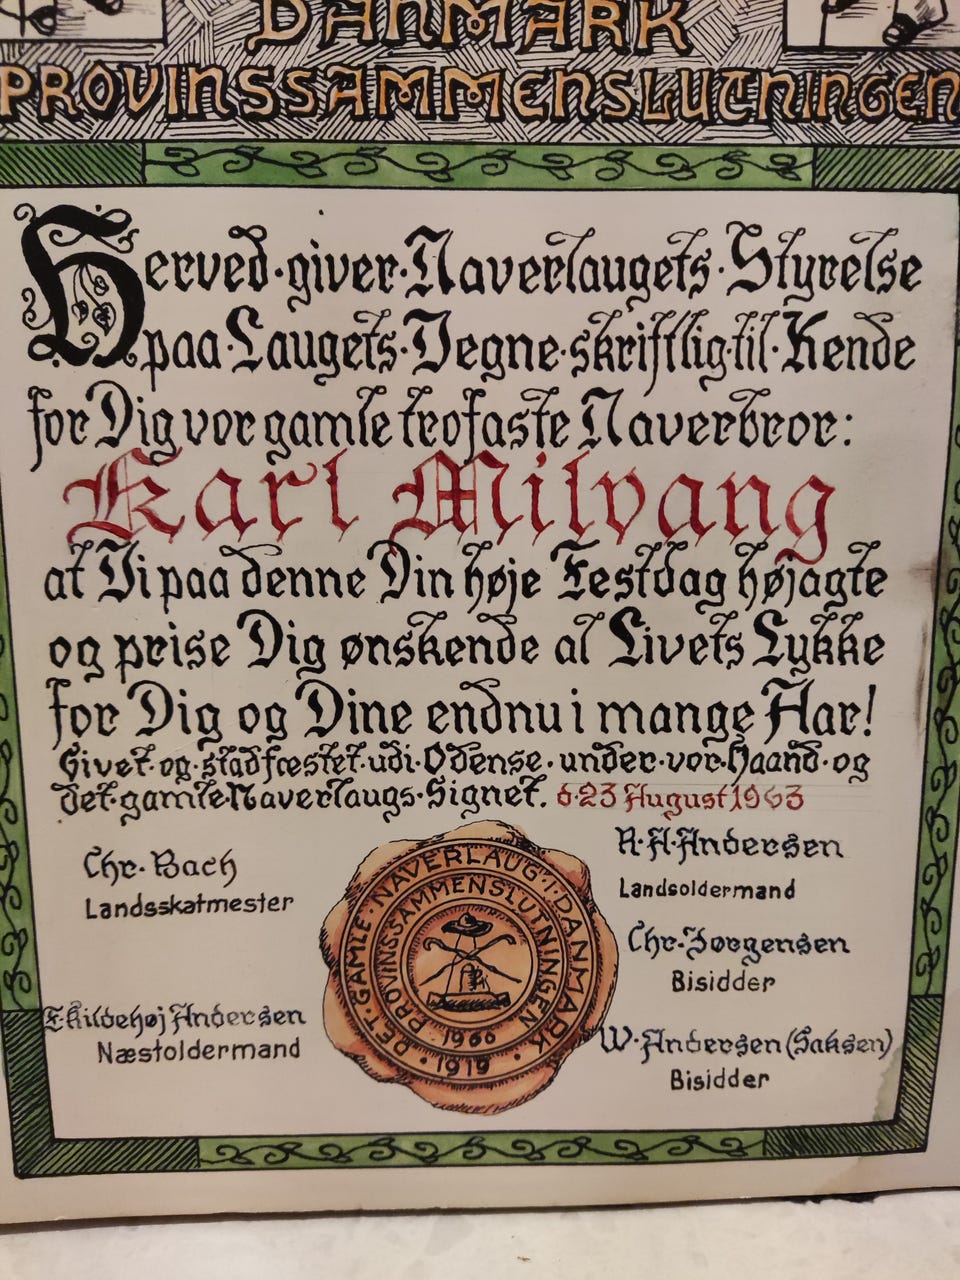 DANMARK
PROVINSSAMMENSLUTNINGEN
Herved·giver·Naverlaugets·Styrelse
paa·Laugets·Vegne·skriftlig·til·Kende
for Dig vor gamle trofaste Naverbror:
Karl Milvang
at Vi paa denne Din høje Festdag højagte
og prise Dig ønskende al Livets Lykke
for Dig og Dine endnu i mange Aar!
Givet·og·stadfæstet·udi·Odense·under·vor·Haand·og
det·gamle·Naverlaugs·Signet. d·23 August 1963
Chr. Bach
Landsskatmester
R·A·Andersen
Landsoldermand
Chr. Jørgensen
Bisidder
E.Kildehøj Andersen
Næstoldermand
W. Andersen (Saksen)
Bisidder
DET·GAMLE·NAVERLAUG·I·DANMARK
PROVINSSAMMENSLUTNINGEN
·1960·
·1919·